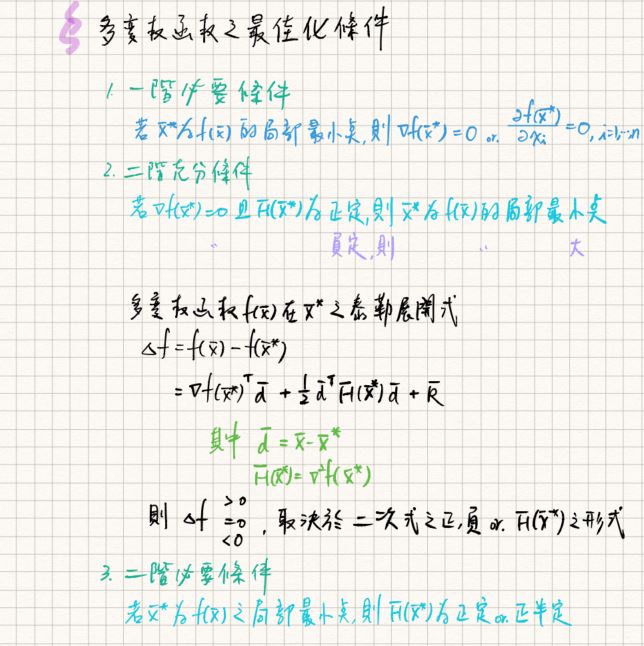 § 多變數函數之最佳化條件
1. 一階必要條件
若 x̄* 為 f(x̄) 的局部最小點, 則 ∇f(x̄*) = 0 or. ∂f(x̄*)/∂xᵢ = 0, i=1,…n
2. 二階充分條件
若 ∇f(x̄*) = 0 且 H̄(x̄*) 為正定, 則 x̄* 為 f(x̄) 的局部最小點
〃 負定, 則 〃 大
多變數函數 f(x̄) 在 x̄* 之泰勒展開式
Δf = f(x̄) - f(x̄*)
= ∇f(x̄*)ᵀ d̄ + ½ d̄ᵀ H̄(x̄*) d̄ + R̄
其中 d̄ = x̄ - x̄*
H̄(x̄*) = ∇²f(x̄*)
則 Δf >0 =0 <0 , 取決於二次式之正, 負 or. H̄(x̄*) 之形式
3. 二階必要條件
若 x̄* 為 f(x̄) 之局部最小點, 則 H̄(x̄*) 為正定 or. 正半定